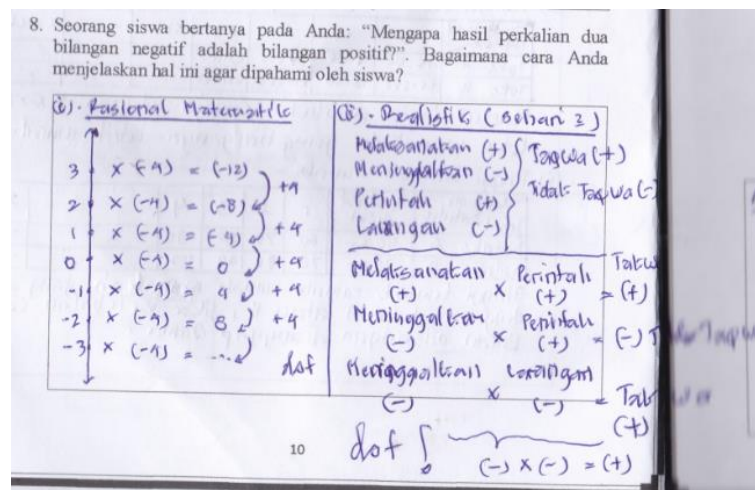 8. Seorang siswa bertanya pada Anda: “Mengapa hasil perkalian dua
bilangan negatif adalah bilangan positif?”. Bagaimana cara Anda
menjelaskan hal ini agar dipahami oleh siswa?
Rasional Matematik
3 × (-4) = (-12)
+4
2 × (-4) = (-8)
+4
1 × (-4) = (-4)
+4
0 × (-4) = 0
+4
-1 × (-4) = 4
+4
-2 × (-4) = 8
-3 × (-4) = ...
dof
Realistik (Sehari 2)
Melaksanakan (+)
Meninggalkan (-)
Perintah (+)
Larangan (-)
Taqwa (+)
Tidak Taqwa (-)
Melaksanakan × Perintah
(+) (+) = (+)
Meninggalkan × Perintah
(-) (+) = (-)
Meninggalkan Larangan
(-) × (-) =
(+)
dof
(-) × (-) = (+)
10